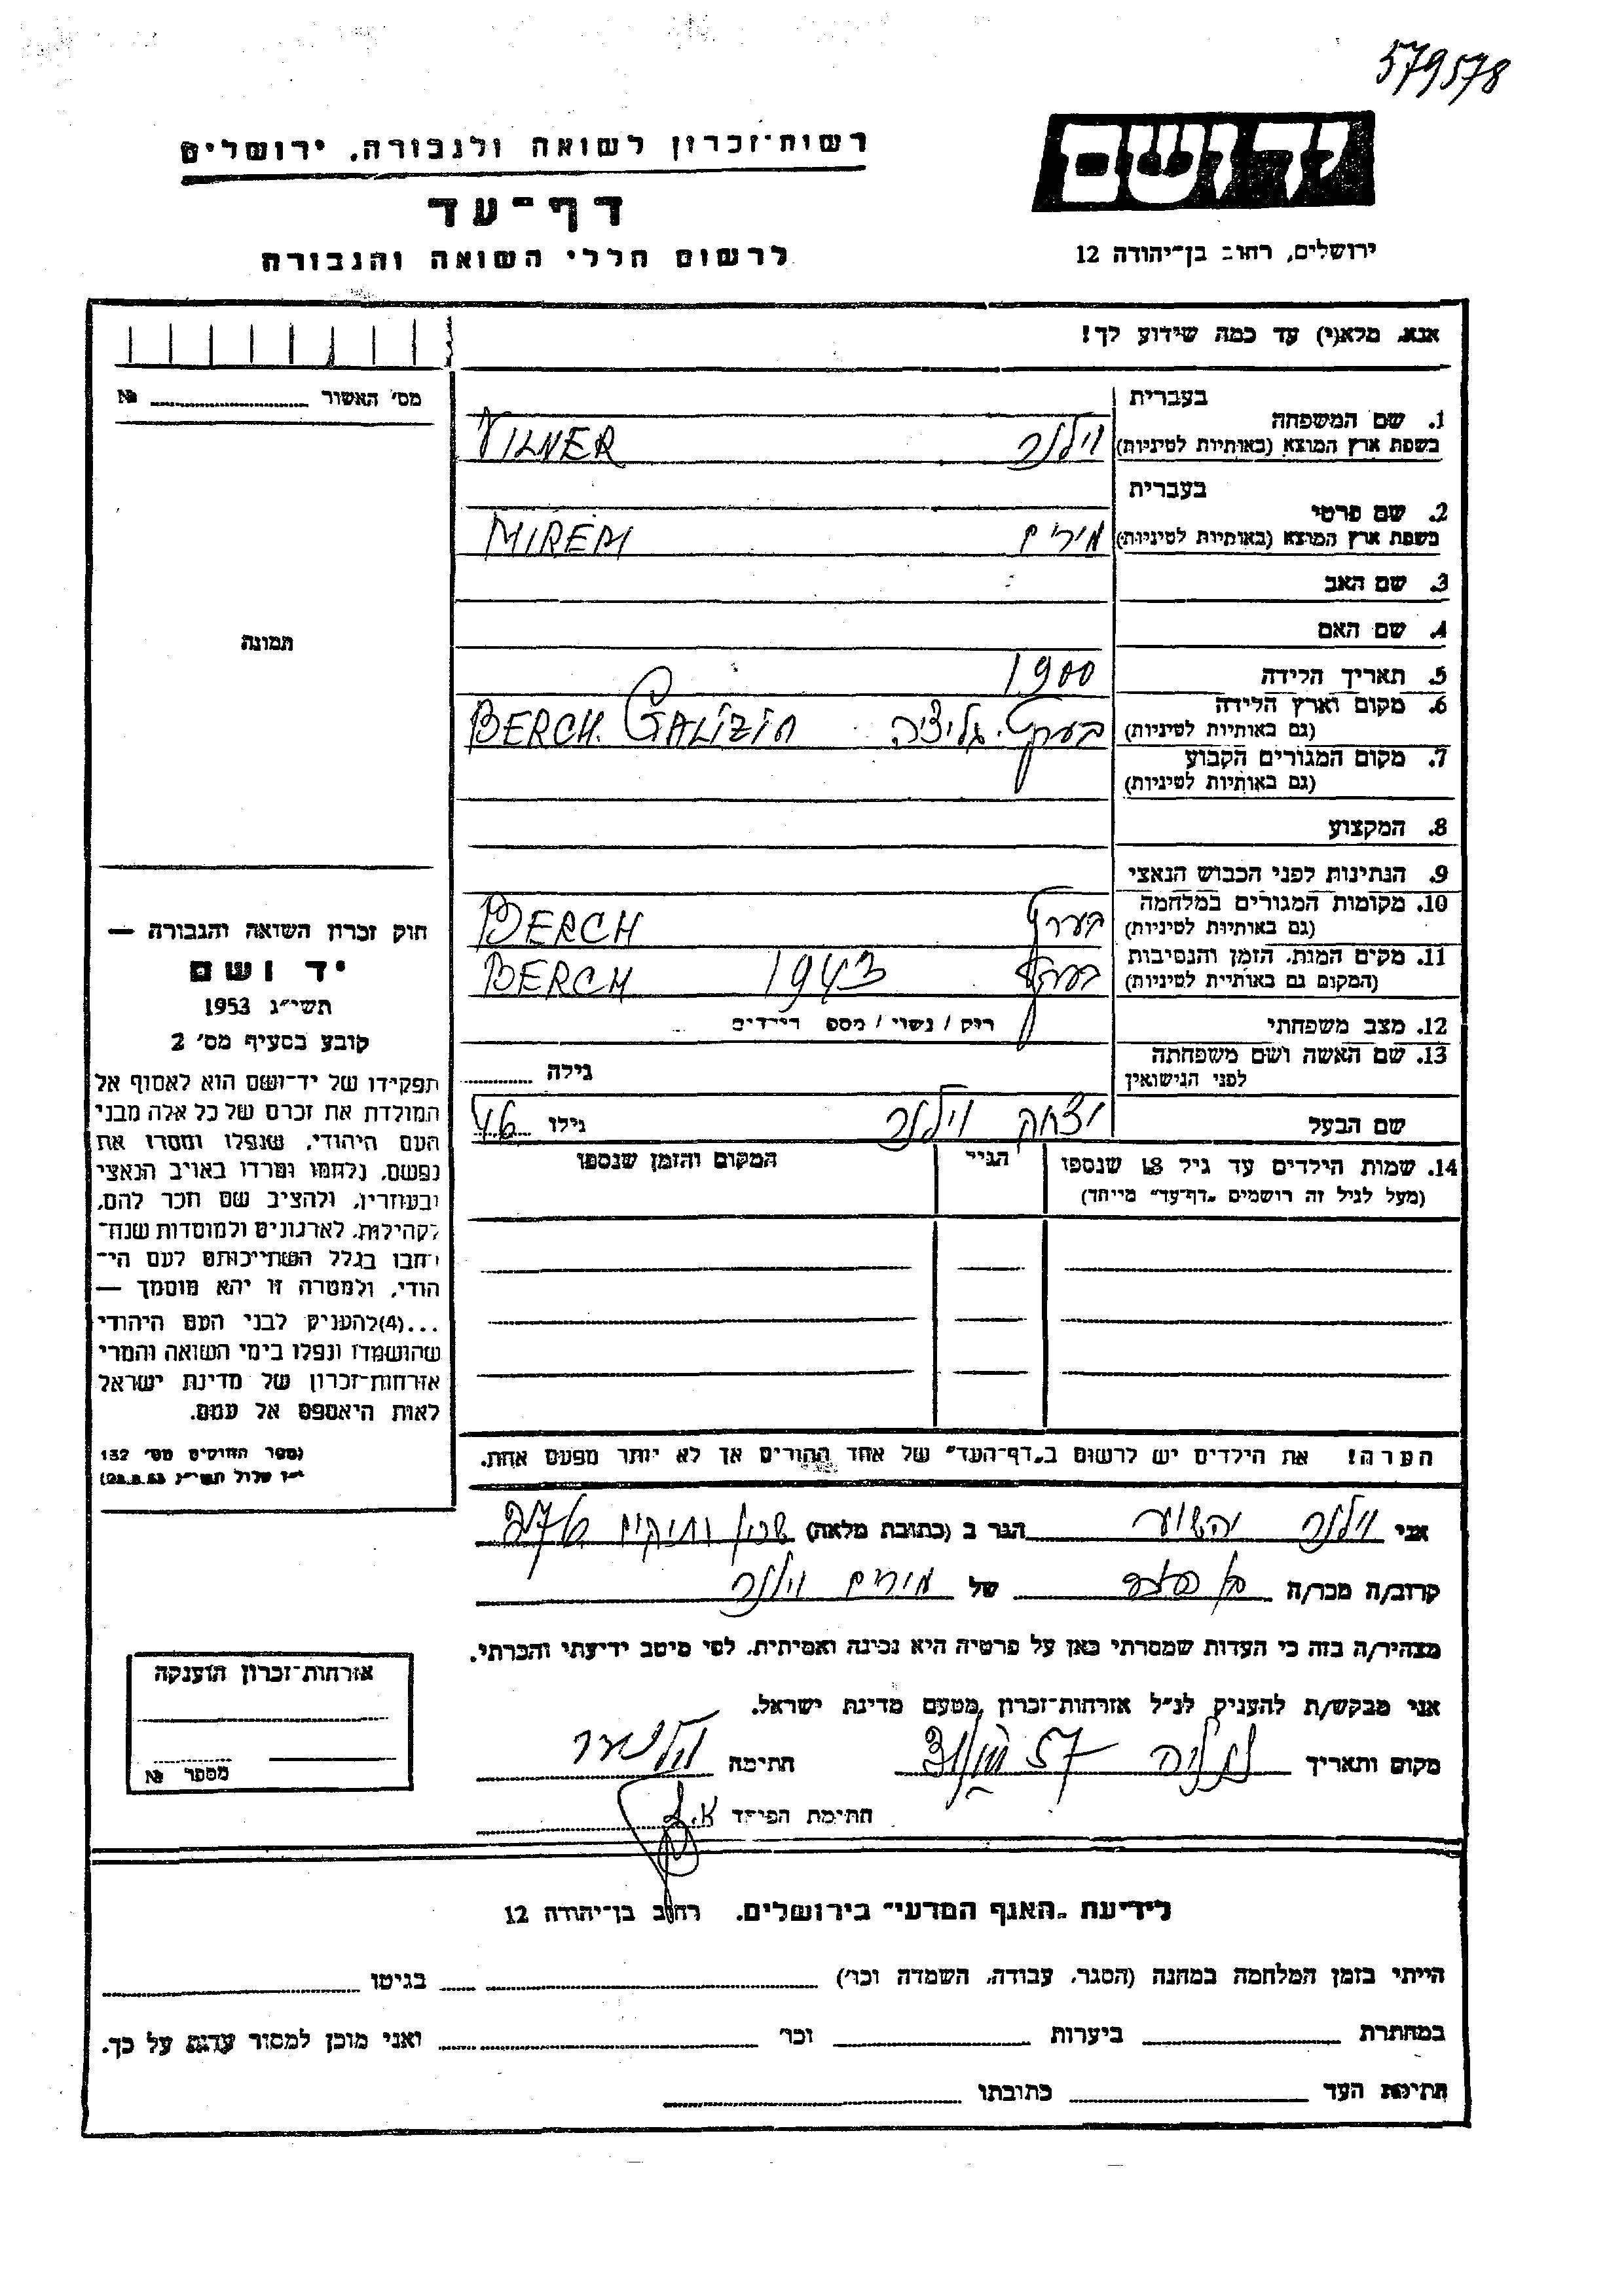 579578
יד ושם
רשות־זכרון לשואה ולגבורה, ירושלים
דף־עד
לרשום חללי השואה והגבורה
ירושלים, רחוב בן־יהודה 12
אנא, מלא(י) עד כמה שידוע לך!
מס' האשור № 
בעברית
1. שם המשפחה
בשפת ארץ המוצא (באותיות לטיניות) וילנר VILNER
בעברית
2. שם פרטי
בשפת ארץ המוצא (באותיות לטיניות) מירים MIREM
3. שם האב
4. שם האם
תמונה
5. תאריך הלידה 1900
6. מקום וארץ הלידה
(גם באותיות לטיניות) גליציה BERCH. GALIZIA
7. מקום המגורים הקבוע
(גם באותיות לטיניות)
8. המקצוע
9. הנתינות לפני הכבוש הנאצי
10. מקומות המגורים במלחמה
(גם באותיות לטיניות) BERCH
11. מקום המות, הזמן והנסיבות
(המקום גם באותיות לטיניות) 1943 BERCH
12. מצב משפחתי רוק / נשוי / מספר הילדים
13. שם האשה ושם משפחתה
לפני הנישואין גילה
שם הבעל יצחק וילנר גילו 46
14. שמות הילדים עד גיל 18 שנספו הגיל המקום והזמן שנספו
(מעל לגיל זה רושמים „דף־עד" מייחד)
חוק זכרון השואה והגבורה —
יד ושם
תשי"ג 1953
קובע בסעיף מס' 2
תפקידו של יד־ושם הוא לאסוף אל
המולדת את זכרם של כל אלה מבני
העם היהודי, שנפלו ומסרו את
נפשם, נלחמו ומרדו באויב הנאצי
ובעוזריו, ולהציב שם וזכר להם,
לקהילות, לארגונים ולמוסדות שנח־
רבו בגלל השתייכותם לעם הי־
הודי, ולמטרה זו יהא מוסמך —
...(4)להעניק לבני העם היהודי
שהושמדו ונפלו בימי השואה והמרי
אזרחות־זכרון של מדינת ישראל
לאות היאספם אל עמם.
(ספר החוקים מס' 132
י"ז אלול תשי"ג 28.8.53)
הערה! את הילדים יש לרשום ב„דף־העד" של אחד ההורים אך לא יותר מפעם אחת.
אני וילנר יהושע הגר ב (כתובת מלאה) שכון ותיקים
קרוב/ה מכר/ה של מירים וילנר
מצהיר/ה בזה כי העדות שמסרתי כאן על פרטיה היא נכונה ואמיתית, לפי מיטב ידיעתי והכרתי.
אני מבקש/ת להעניק לנ"ל אזרחות־זכרון מטעם מדינת ישראל.
מקום ותאריך נתניה 57 חתימה
חתימת הפוקד
אזרחות־זכרון הוענקה
מספר №
לידיעת „האגף המדעי" בירושלים, רחוב בן־יהודה 12
הייתי בזמן המלחמה במחנה (הסגר, עבודה, השמדה וכו') בגיטו
במחתרת ביערות וכו' ואני מוכן למסור עדות על כך.
חתימת העד כתובתו